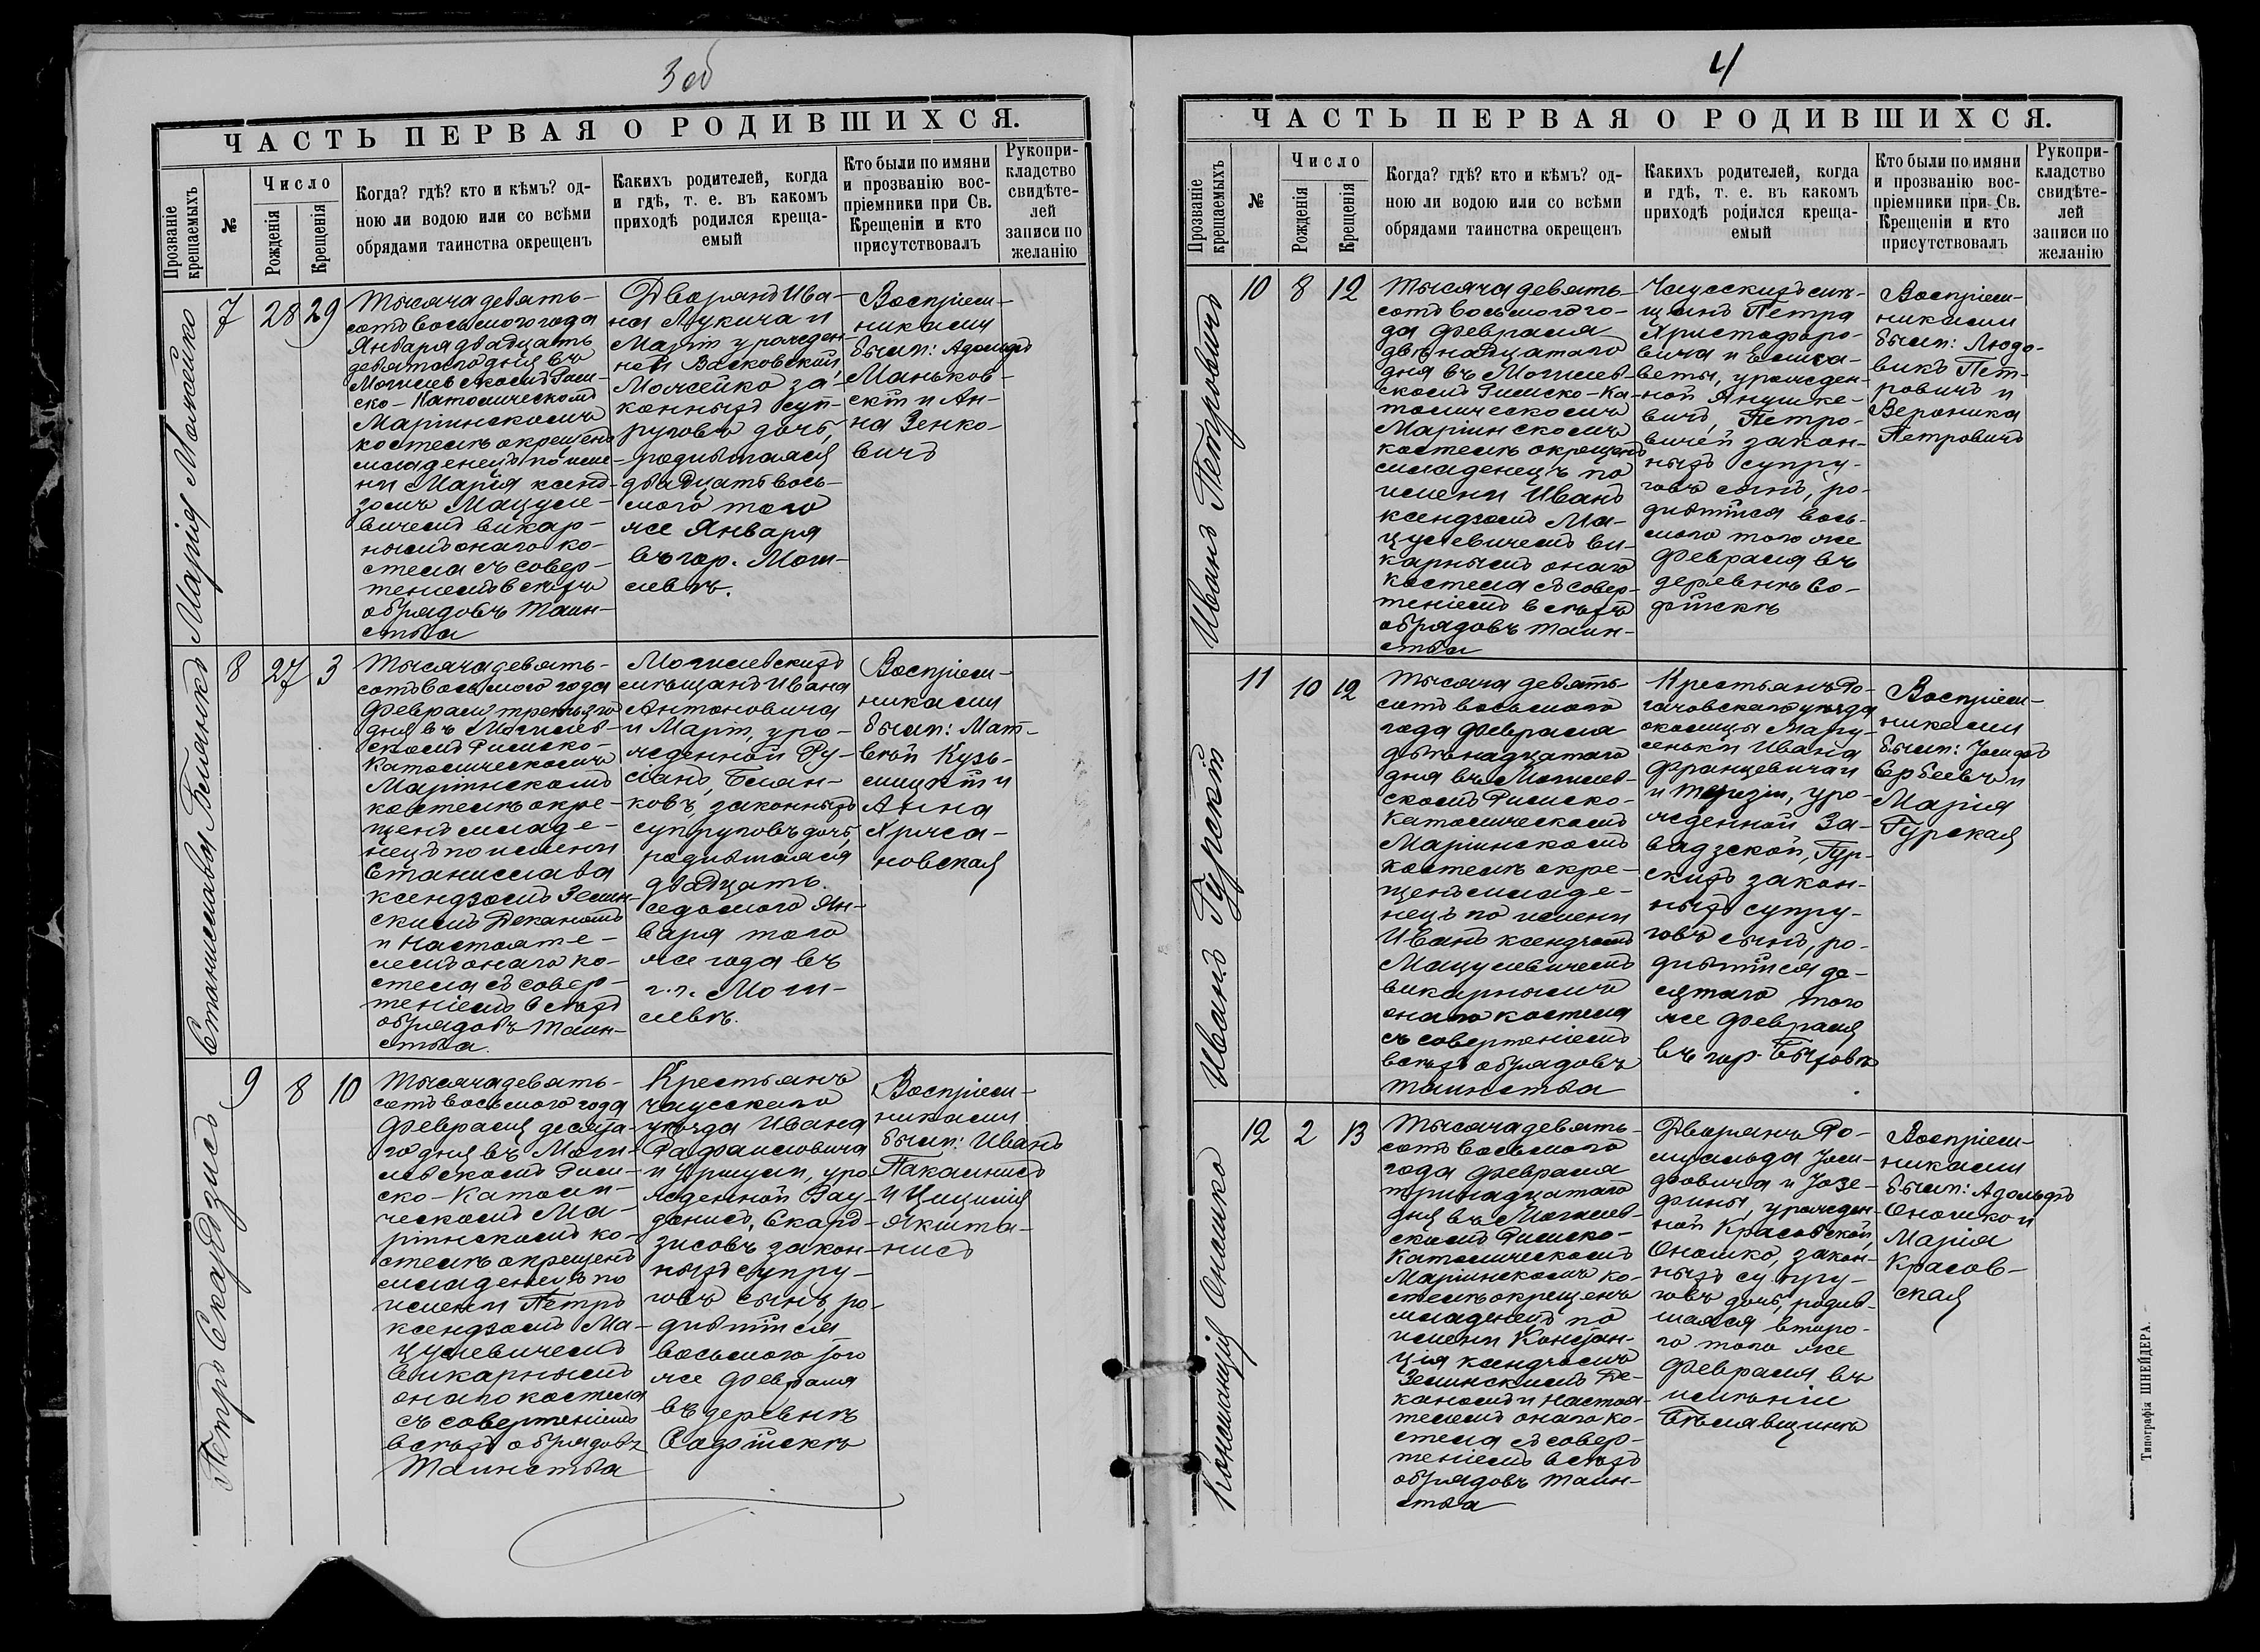 3 об
ЧАСТЬ ПЕРВАЯ О РОДИВШИХСЯ.
Прозваніе крещаемыхъ
№
Число
Рожденія
Крещенія
Когда? гдѣ? кто и кѣмъ? од-
ною ли водою или со всѣми
обрядами таинства окрещенъ
Какихъ родителей, когда
и гдѣ, т. е. въ какомъ
приходѣ родился креща-
емый
Кто были по имяни
и прозванію вос-
пріемники при Св.
Крещеніи и кто
присутствовалъ
Рукопри-
кладство
свидѣте-
лей
записи по
желанію
Марія Можейко
7
28
29
Тысяча девять-
сотъ восьмого года
Января двадцать
девятаго дня въ
Могилевскомъ Рим-
ско-Католическомъ
Маріинскомъ
костелѣ окрещенъ
младенецъ по име-
ни Марія ксенд-
зомъ Мацуле-
вичемъ викар-
нымъ онаго ко-
стела съ совер-
шеніемъ всѣхъ
обрядовъ Таин-
ства
Дворянъ Ива-
на Лукича и
Маріи урожден-
ной Васковской,
Можейко за-
конныхъ суп-
руговъ дочь,
родившаяся
двадцать вось-
мого того
же Января
въ гор. Моги-
левѣ.
Воспріем-
никами
были: Адольфъ
Маньков-
скій и Ан-
на Зенко-
вичъ
Станислава Блянкъ
8
27
3
Тысяча девять-
сотъ восьмого года
Февраля третьяго
дня въ Могилев-
скомъ Римско-
Католическомъ
Маріинскомъ
костелѣ окре-
щенъ младе-
нецъ по имени
Станислава
ксендзомъ Земин-
скимъ Деканомъ
и Настояте-
лемъ онаго ко-
стела съ совер-
шеніемъ всѣхъ
обрядовъ Таин-
ства.
Могилевскихъ
мѣщанъ Ивана
Антоновича
и Маріи, уро-
жденной Ру-
сіанъ, Блян-
ковъ, законныхъ
супруговъ дочь,
родившаяся
двадцать
седьмого Ян-
варя того
же года въ
г.г. Моги-
левѣ.
Воспріем-
никами
были: Мат-
вѣй Кузь-
мицкій и
Анна
Хриса-
новская
Петръ Скардзисъ
9
8
10
Тысяча девять-
сотъ восьмого года
Февраля десята-
го дня въ Моги-
левскомъ Рим-
ско-Католи-
ческомъ Ма-
ріинскомъ ко-
стелѣ окрещенъ
младенецъ по
имени Петръ
ксендзомъ Ма-
цулевичемъ
викарнымъ
онаго костела
съ совершеніемъ
всѣхъ обрядовъ
Таинства
Крестьянъ
Чаусскаго
уѣзда Ивана
Рафаиловича
и Уршули, уро-
жденной Рау-
данисъ, Скард-
зисовъ закон-
ныхъ супру-
говъ сынъ, ро-
дившійся
восьмого того
же Февраля
въ деревнѣ
Садрійскѣ
Воспріем-
никами
были: Иванъ
Пакальнисъ
и Цицилія
Якшта-
нисъ
4
ЧАСТЬ ПЕРВАЯ О РОДИВШИХСЯ.
Прозваніе крещаемыхъ
№
Число
Рожденія
Крещенія
Когда? гдѣ? кто и кѣмъ? од-
ною ли водою или со всѣми
обрядами таинства окрещенъ
Какихъ родителей, когда
и гдѣ, т. е. въ какомъ
приходѣ родился креща-
емый
Кто были по имяни
и прозванію вос-
пріемники при Св.
Крещеніи и кто
присутствовалъ
Рукопри-
кладство
свидѣте-
лей
записи по
желанію
Иванъ Петровичъ
10
8
12
Тысяча девять-
сотъ восьмого го-
да Февраля
двѣнадцатаго
дня въ Могилев-
скомъ Римско-Ка-
толическомъ
Маріинскомъ
костелѣ окрещенъ
младенецъ по
имени Иванъ
ксендзомъ Ма-
цулевичемъ ви-
карнымъ онаго
костела съ совер-
шеніемъ всѣхъ
обрядовъ таин-
ства
Чаусскихъ мѣ-
щанъ Петра
Христофоро-
вича и Елиза-
веты, урожден-
ной Янушке-
вичъ, Петро-
вичей закон-
ныхъ супру-
говъ сынъ, ро-
дившійся вось-
мого того же
Февраля въ
деревнѣ Со-
фійскѣ
Воспріем-
никами
были: Людо-
викъ Пет-
ровичъ и
Вероника
Петровичъ
Иванъ Гурскій
11
10
12
Тысяча девять-
сотъ восьмого
года Февраля
двѣнадцатаго
дня въ Могилев-
скомъ Римско-
Католическомъ
Маріинскомъ
костелѣ окре-
щенъ младе-
нецъ по имени
Иванъ ксендзомъ
Мацулевичемъ
викарнымъ
онаго костела
съ совершеніемъ
всѣхъ обрядовъ
Таинства
Крестьянъ Ро-
гачовскаго уѣзда
околицы Мару-
сеньки Ивана
Францевича и
и Терезіи, уро-
жденной За-
вадзской, Гур-
скихъ закон-
ныхъ супру-
говъ сынъ, ро-
дившійся де-
сятаго того
же Февраля
въ гор. Быховѣ
Воспріем-
никами
были: Іосифъ
Сербеевъ и
Марія
Гурская
Констанція Оношко
12
2
13
Тысяча девять-
сотъ восьмого
года Февраля
тринадцатаго
дня въ Могилев-
скомъ Римско-
Католическомъ
Маріинскомъ ко-
стелѣ окрещенъ
младенецъ по
имени Констан-
ція ксендзомъ
Земинскимъ Де-
каномъ и Настоя-
телемъ онаго ко-
стела съ совер-
шеніемъ всѣхъ
обрядовъ Таин-
ства
Дворянъ Ро-
муальда Іоси-
фовича и Іозе-
фины, урожден-
ной Красовской,
Оношко, закон-
ныхъ супру-
говъ дочь, родив-
шаяся второ-
го того же
Февраля въ
имѣніи
Бѣлявщинѣ
Воспріем-
никами
были: Адольфъ
Оношко и
Марія
Красов-
ская
Типографія ШНЕЙДЕРА.